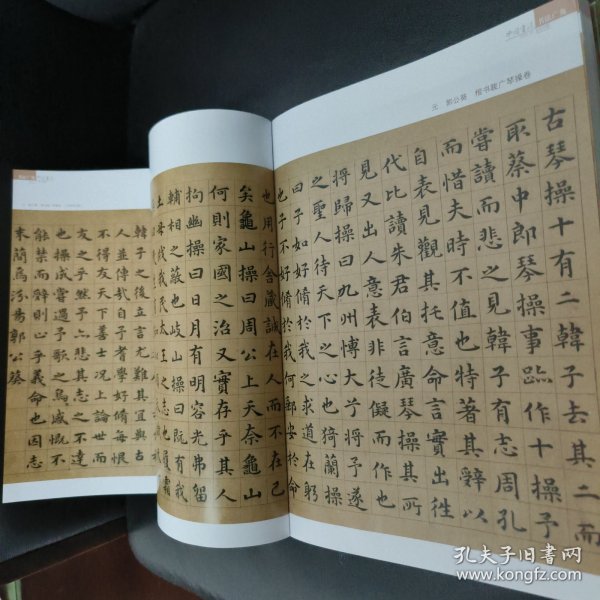 元 郭公葵 楷书跋广琴操卷
古琴操十有二韓子去其二而
取蔡中郎琴操事臨作十操予
嘗讀而悲之見韓子有志周孔
而惜夫時不值也特著其辭以
自表見觀其托意命言實出徃
代比讀朱君伯言廣琴操其所
見又出人意表非徒儗而作也
將歸操曰九州博大兮將予遂
之聖人待天下之心也猗蘭操
曰子如好脩於我之求道在躬
也予不好脩於我何郵安於命
也用行舍藏誠在人而不在己
矣龜山操曰周公上天奈龜山
何則家國之治又實存乎其人
拘幽操曰日月有明容光弗留
輔相之蔽也岐山操曰既有我
韓子之後立言尤難其宜與古
人並傳哉自子者學好脩每恨
不得友天下善士況上論世而
友之乎然六悲其志之不達
也操成嘗過予歌之為慼慨不
能禁而辭則心乎義命也因志
末簡為汾昜郭公葵
孔夫子旧书网
www.kongfz.com